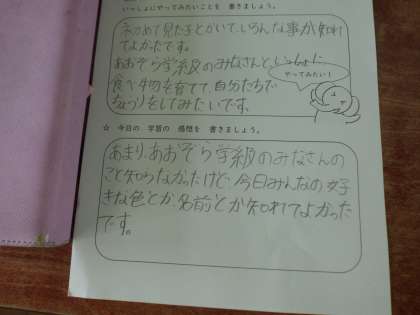 いっしょにやってみたいことを 書きましょう。
初めて見た子とかいて、いろんな事が知れ
てよかたです。
あおぞら学級のみなさんと、いっしょに
食べ物を育てて、自分たちで
ちょうりをしてみたいです。
やってみたい!
☆ 今日の 学習の 感想を 書きましょう。
あまりあおぞら学級のみなさんの
こと知らなかったけど、今日みんなの好
きな色とか、名前とか知れてよかった
です。